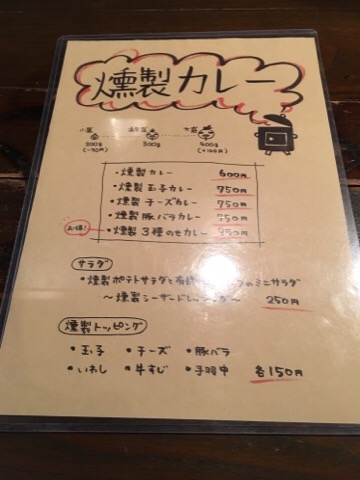 燻製カレー
小盛 普通盛 大盛
200g 300g 400g
(-50円) (+100円)
・燻製カレー 600円
・燻製玉子カレー 750円
・燻製チーズカレー 750円
・燻製豚バラカレー 750円
お得! ・燻製3種のせカレー 950円
サラダ
・燻製ポテトサラダと有機 のミニサラダ
〜燻製シーザードレッシング〜 250円
燻製トッピング
・玉子 ・チーズ ・豚バラ
・いわし ・牛すじ ・手羽中 各150円